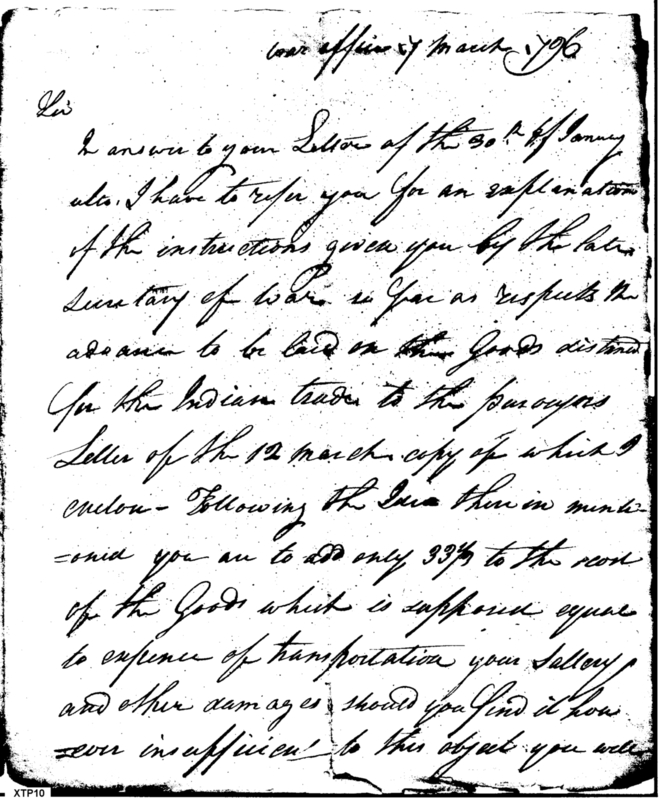 war office 7 March 1796
Sir
In answer to your Letter of the 30th of January
ulto. I have to refer you for an explanation
of the instructions given you by the late
Secretary of War in far as respects the
advance to be laid on the Goods distined
for the Indian trade to the purveyors
Letter of the 12 march copy of which I
enclou - Following the Idea there in menti-
=oned you are to add only 33⅓ to the cost
of the Goods which is supposed equal
to expence of transportation your Sallery
and other damages should you find it how
=ever insufficient to this object you will
XTP10